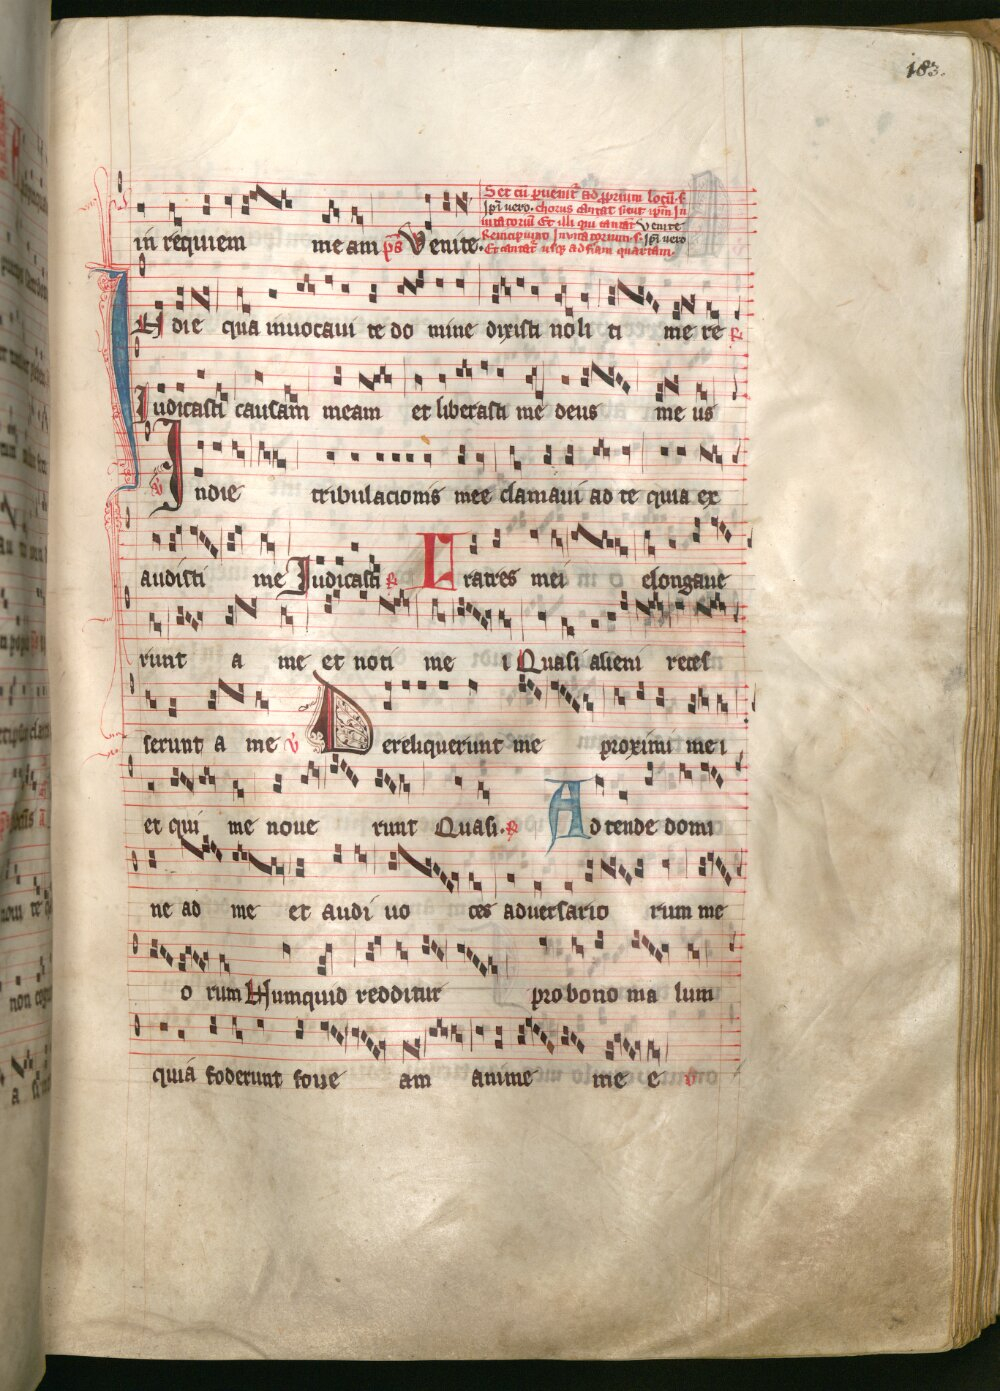 183.
in requiem me am ps Venite.
Set cū puenit̄ ad ꝓprium locū. s.
ip̄i vero. chorus cantat sicut ip̄m in
uitatoriū Et illi qui cantāt Venite
Et cantat̄ usq̨ ad finam quartam.
In die qua inuocaui te do mine dixisti no li ti me re
Iudicasti causam meam et liberasti me deus me us
In die tribulacionis mee clamaui ad te quia ex
audisti me Iudicasti Fratres mei elongaue
runt a me et noti me i Quasi alieni reces
serunt a me Dereliquerunt me proximi me i
et qui me noue runt Quasi. Adtende domi
ne ad me et audi uo ces aduersario rum me
o rum Numquid redditur pro bono ma lum
quia foderunt foue am anime me e